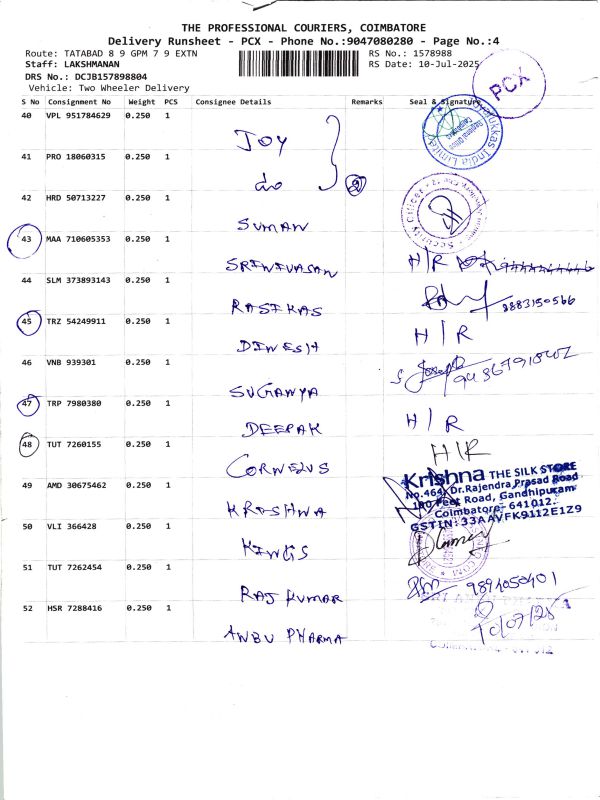 THE PROFESSIONAL COURIERS, COIMBATORE
Delivery Runsheet - PCX - Phone No.:9047080280 - Page No.:4
Route: TATABAD 8 9 GPM 7 9 EXTN
RS No.: 1578988
Staff: LAKSHMANAN
RS Date: 10-Jul-2025
DRS No.: DCJB157898804
Vehicle: Two Wheeler Delivery
PCX
S No Consignment No Weight PCS Consignee Details Remarks Seal & Signature
40 VPL 951784629 0.250 1 JOY
41 PRO 18060315 0.250 1 do 2
42 HRD 50713227 0.250 1 SUMAN
43 MAA 710605353 0.250 1 SRINIVASAN H/R
44 SLM 373893143 0.250 1 RASIKAS 8883150566
45 TRZ 54249911 0.250 1 DINESH H/R
46 VNB 939301 0.250 1 SUGANYA Joseph
47 TRP 7980380 0.250 1 DEEPAK H/R
48 TUT 7260155 0.250 1 CORNELUS H/R
49 AMD 30675462 0.250 1 KRISHNA
Krishna THE SILK STORE
No.464, Dr.Rajendra Prasad Road
100 Feet Road, Gandhipuram
Coimbatore- 641012.
GSTIN:33AAVFK9112E1Z9
50 VLI 366428 0.250 1 KINGS
51 TUT 7262454 0.250 1 RAJ KUMAR
52 HSR 7288416 0.250 1 ANBU PHARMA 10/07/25